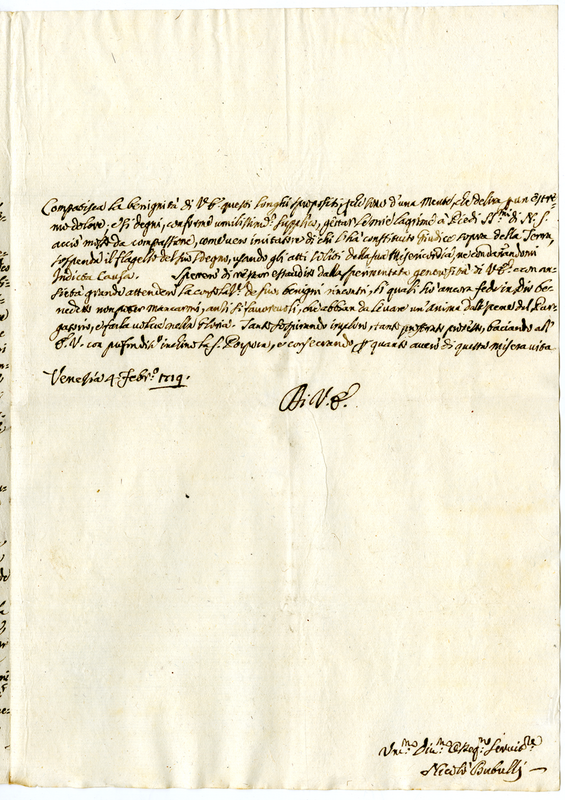 Compatisca la benignità di V. E. questi longhi spropositi, che sono d'una Mente, che delira p un estre-
mo dolore; e si degni, conforme umilissime supplico, gettar le mie lagrime a Piedi SS.mi di N. S.
acciò mosso da compassione, come vero imitatore di chi l'hà constituito Giudice sopra della Terra,
sospenda il flagello del suo sdegno, usando gli atti soliti della sua Misericordia, ne condannandomi
Indicta Causa. Spero di restar esaudito dalla sperimentata generosità di V. E. e con an-
sietà grande attenderò la de suoi benigni riscontri, li quali hò ancora fede in Dio be-
nedetto non poter mancarmi, anzi sì favorevoli, che abbian da levare un'anima dalle pene del Pur-
gatorio, e farla volare nella Gloria. Tanto sospirando imploro, tanto prostrato, baciando all'
E. V. con profondis.o inchino la S. Porpora, e consecrando quanto averò di questa misera vita
Venezia 4. Febr.o 1719.
Di V. E.
Um.mo Div.mo Osseq.mo Servid.re
Nicolò Bubulli